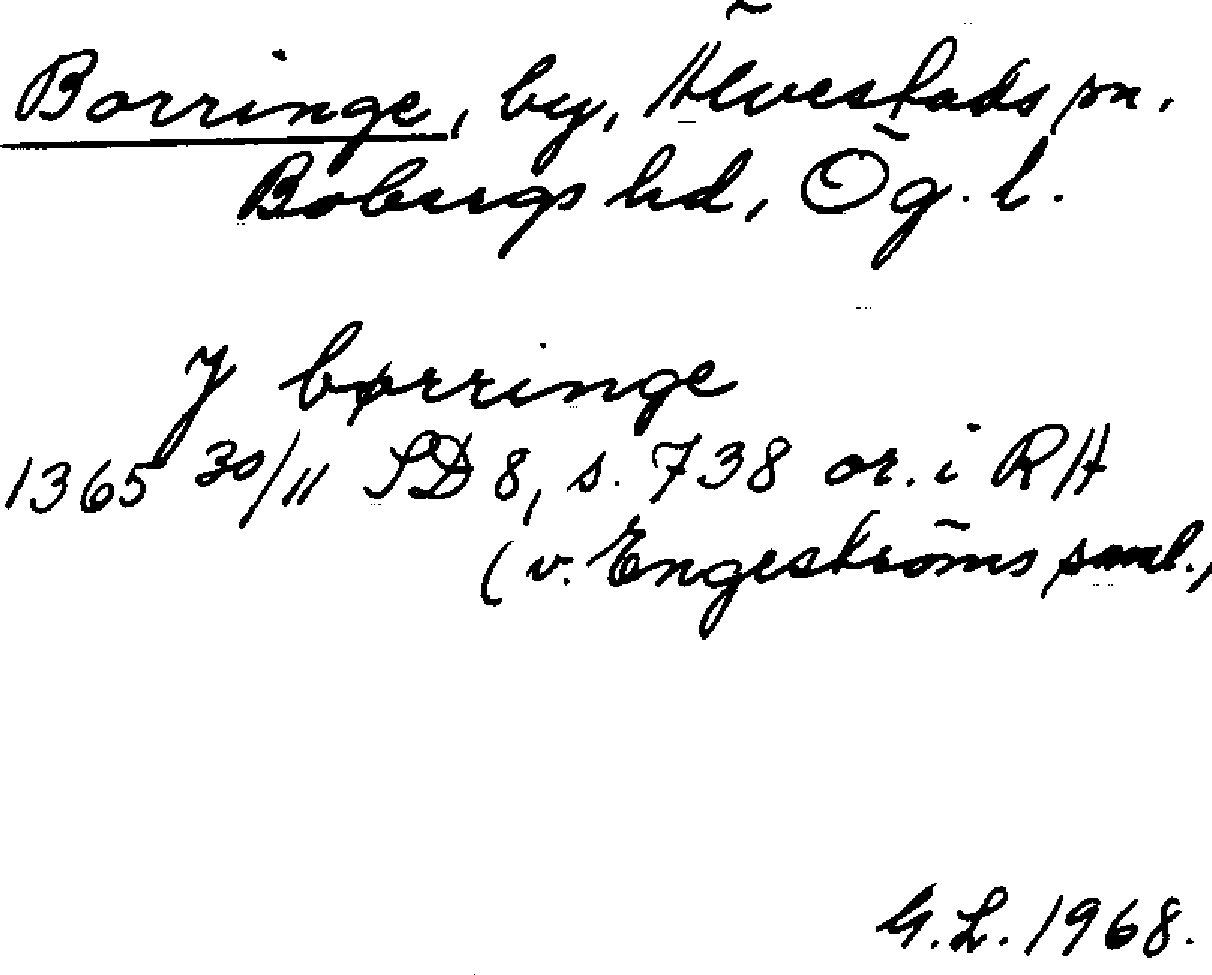 Borringe, by, Älvestads sn.
Bobergs hd, Ög. l.
J børringe
1365 30/11 SD 8, s. 738 or. i RA
(v. Engeströms saml.,
G. L. 1968.